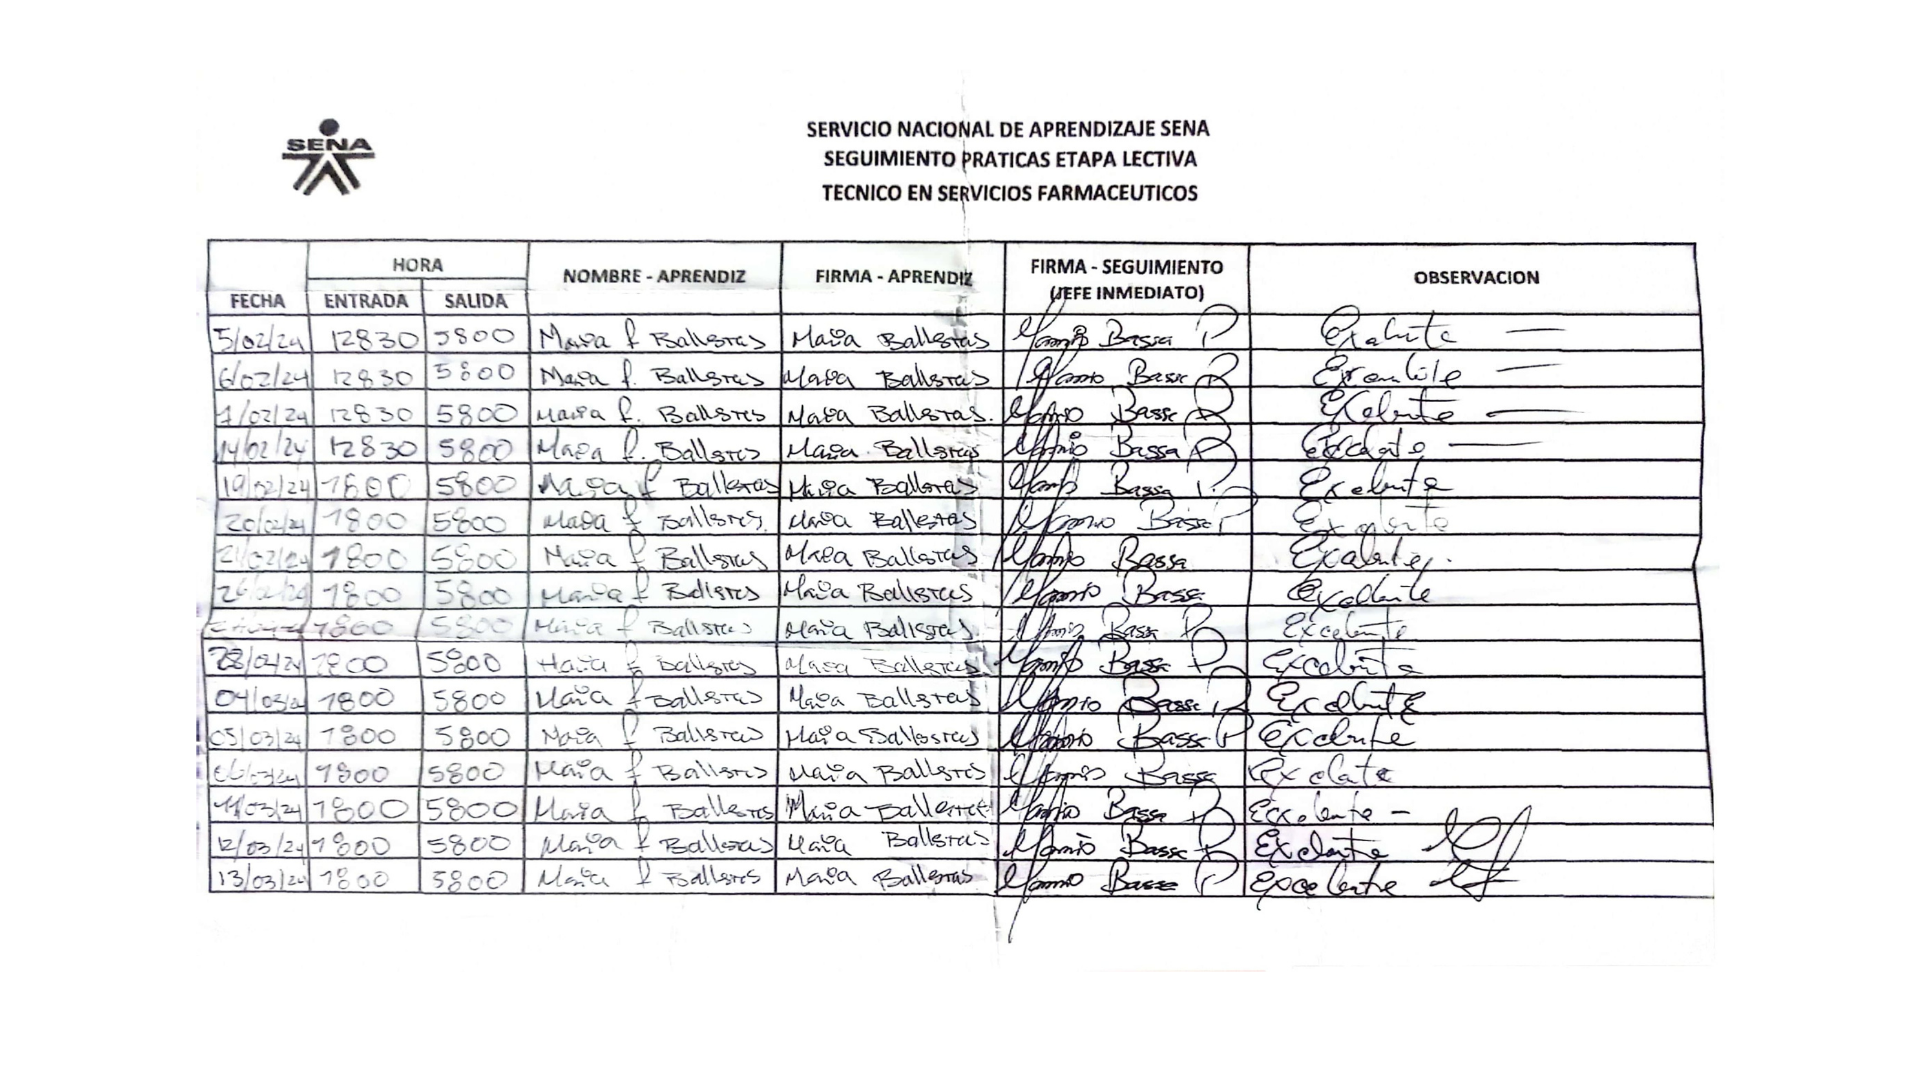 SENA
SERVICIO NACIONAL DE APRENDIZAJE SENA
SEGUIMIENTO PRATICAS ETAPA LECTIVA
TECNICO EN SERVICIOS FARMACEUTICOS
FECHA HORA ENTRADA SALIDA NOMBRE - APRENDIZ FIRMA - APRENDIZ FIRMA - SEGUIMIENTO (JEFE INMEDIATO) OBSERVACION
5/02/24 12:30 5:00 Maria f Ballestas Maria Ballestas Bassa Excelente
6/02/24 12:30 5:00 Maria f. Ballestas Maria Ballestas Bassa Excelente
7/02/24 12:30 5:00 Maria f. Ballestas Maria Ballestas. Bassa Excelente
14/02/24 12:30 5:00 Maria f. Ballestas Maria Ballestas Bassa Excelente
19/02/24 1:00 5:00 Maria f Ballestas Maria Ballestas Bassa Excelente
20/02/24 1:00 5:00 Maria f Ballestas. Maria Ballestas Bassa Excelente
21/02/24 1:00 5:00 Maria f Ballestas Maria Ballestas Bassa Excelente.
26/02/24 1:00 5:00 Maria f Ballestas Maria Ballestas Bassa Excelente
1:00 5:00 Maria f Ballestas Maria Ballestas Bassa Excelente
28/02/24 1:00 5:00 Maria f Ballestas Maria Ballestas Bassa Excelente
04/03/24 1:00 5:00 Maria f Ballestas Maria Ballestas Bassa Excelente
05/03/24 1:00 5:00 Maria f Ballestas Maria Ballestas Bassa Excelente
06/03/24 1:00 5:00 Maria f Ballestas Maria Ballestas Bassa Excelente
11/03/24 1:00 5:00 Maria f Ballestas Maria Ballestas Bassa Excelente -
12/03/24 1:00 5:00 Maria f Ballestas Maria Ballestas Bassa Excelente
13/03/24 1:00 5:00 Maria f Ballestas Maria Ballestas Bassa Excelente